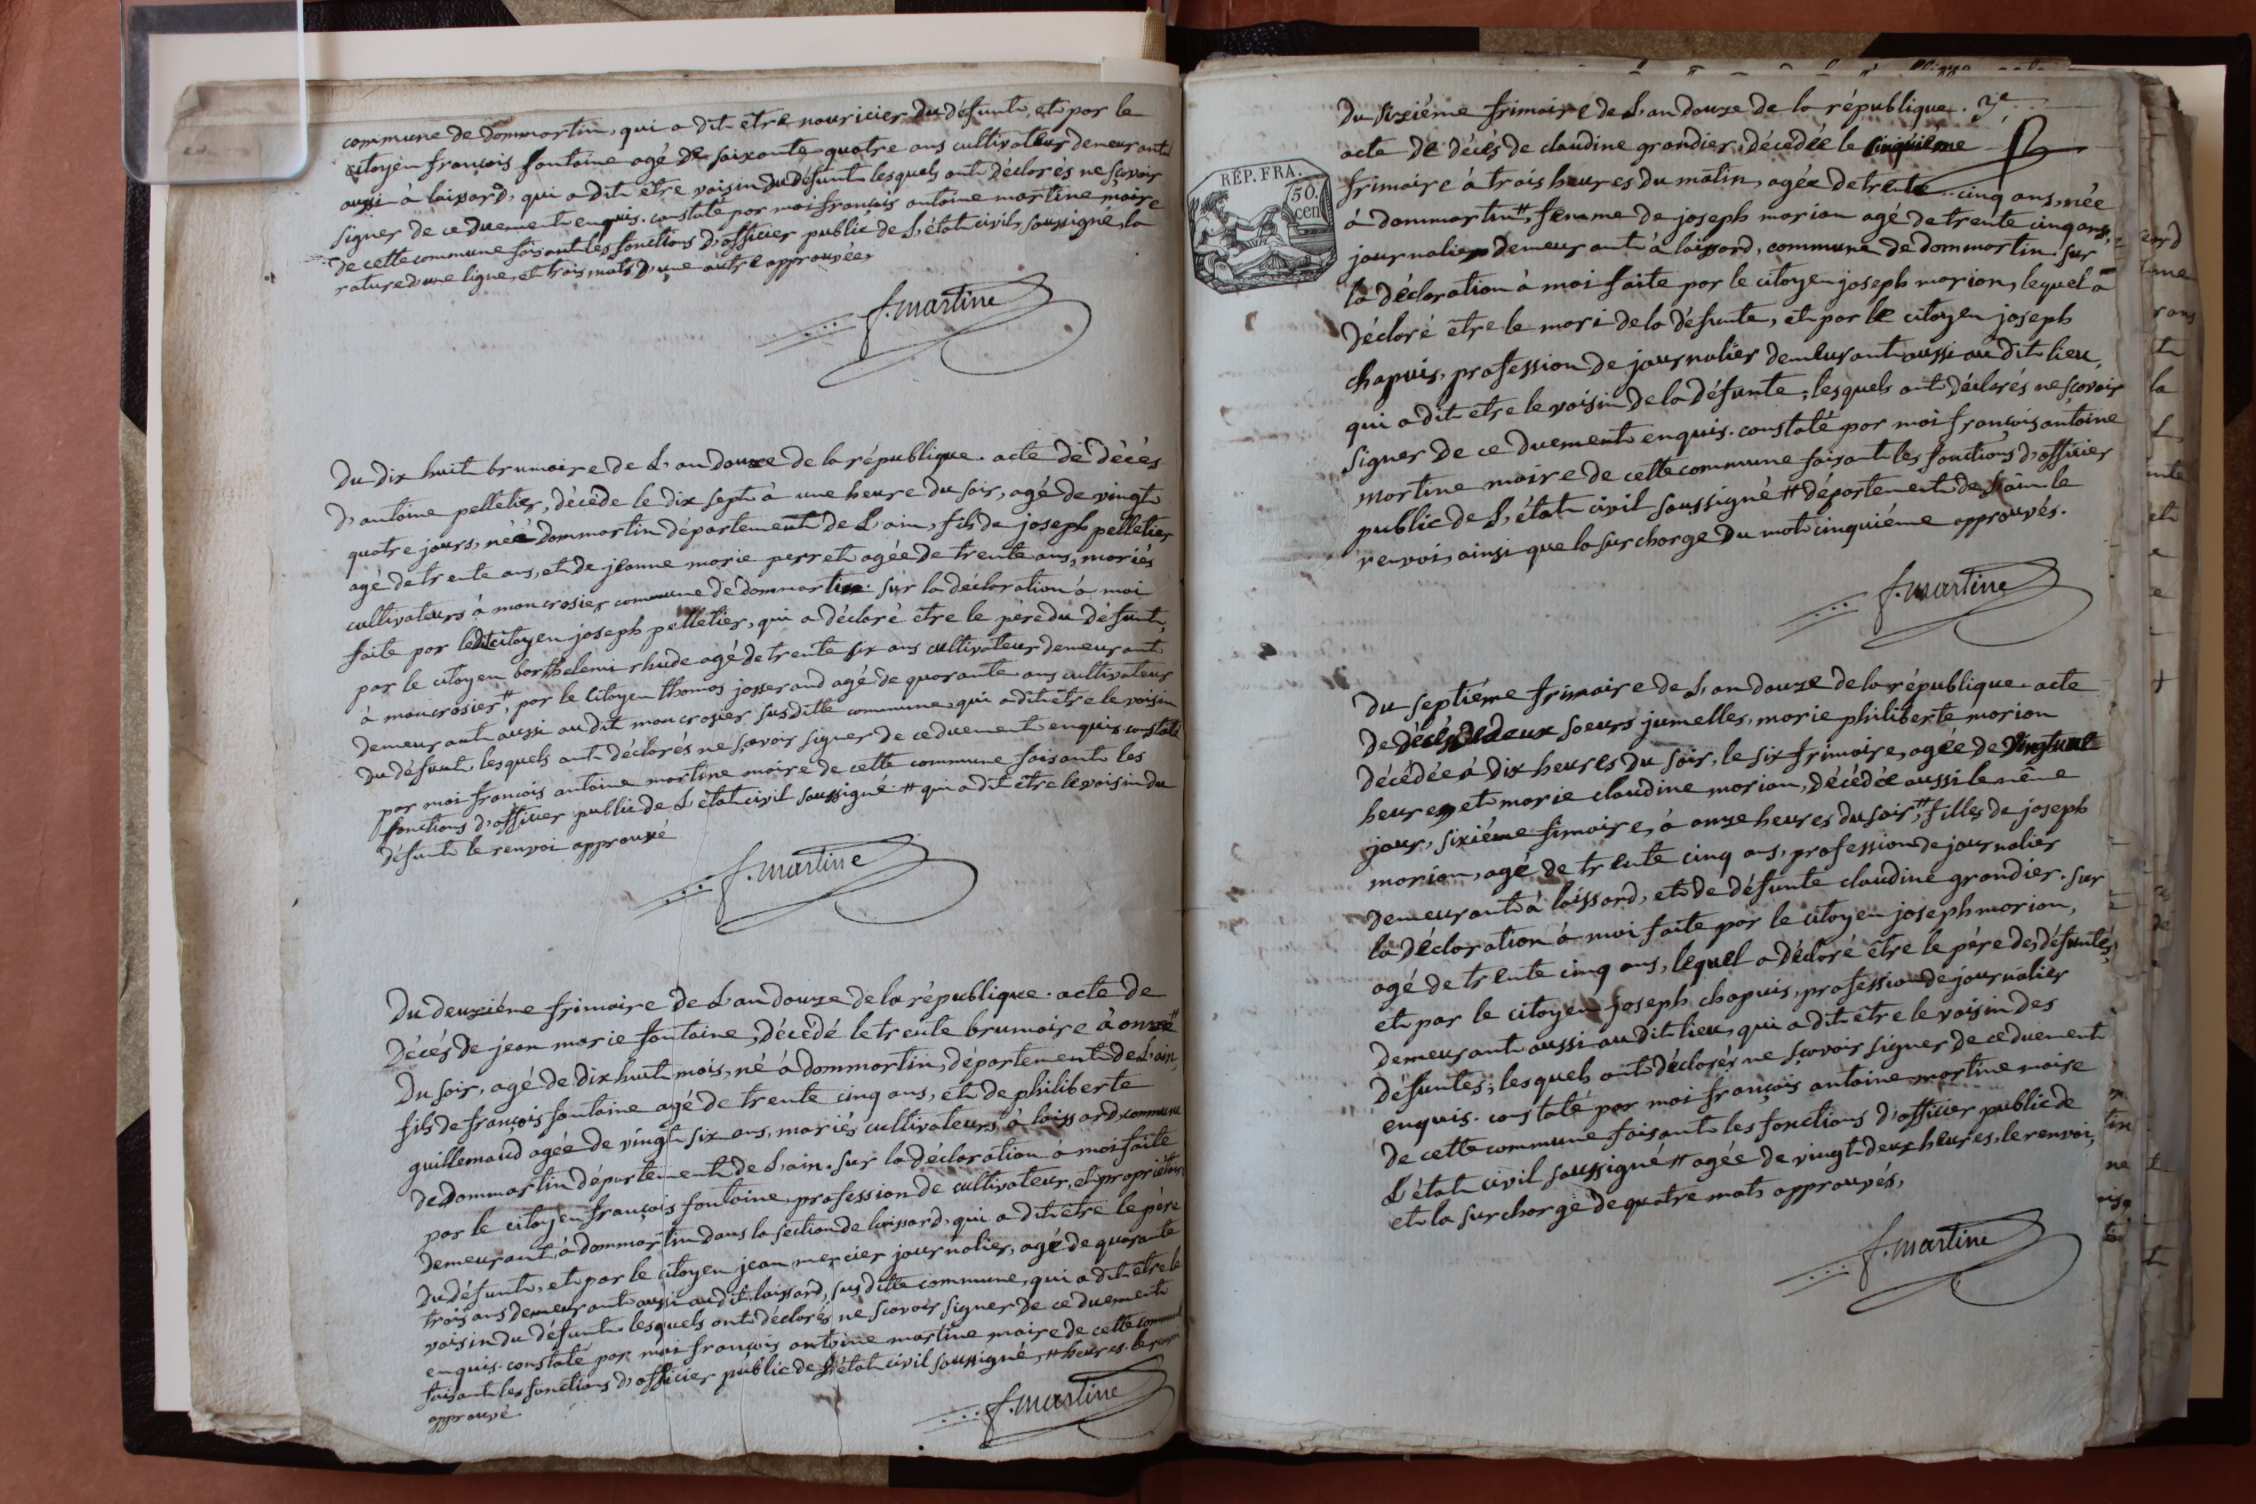 commune de dommartin, qui a dit etre nouricier du défunt, et par le
citoyen françois fontaine agé de soixante quatre ans cultivateur demeurant
aussi à loissard, qui a dit etre voisin du défunt lesquels ont déclarés ne sçavoir
signer de ce duement enquis. constaté par moi françois antoine martine maire
de cette commune faisant les fonctions d'officier public de l'état civil soussigné, la
rature d'une ligne, et trois mots d'une autre approuvée,
f. martine
Du dix huit brumaire de l'an douze de la république. acte de décés
d'antoine pelletier, décéde le dix sept à une heure du soir, agé de vingt
quatre jours, né à dommartin département de l'ain, fils de joseph pelletier
agé de trente ans, et de jeanne marie perret agée de trente ans, mariés
cultivateurs à moncrosier commune de dommartin. sur la déclaration à moi
faite par ledit citoyen joseph pelletier, qui a déclaré etre le pére du défunt,
par le citoyen barthelemi rhude agé de trente six ans cultivateur demeurant
à moncrosier #, par le citoyen thomas josserand agé de quarante ans cultivateur
demeurant aussi au dit moncrosier susditte commune, qui a dit etre le voisin
du défunt, lesquels ont déclarés ne sçavoir signer de ce duement enquis constaté
par moi françois antoine martine maire de cette commune faisant les
fonctions d'officier public de l'état civil soussigné # qui a dit etre le voisin du
défunt le renvoi approuvé
f. martine
Du deuxiéme frimaire de l'an douze de la république. acte de
décés de jean marie fontaine, décédé le trente brumaire à onze #
du soir, agé de dix huit mois, né à dommartin, département de l'ain,
fils de françois fontaine agé de trente cinq ans, et de philiberte
guillemaud agée de vingt six ans, mariés cultivateurs, à loissard, commune
de dommartin département de l'ain. sur la déclaration a moi faite
par le citoyen françois fontaine, profession de cultivateur, et propriétaire
demeurant, à dommartin dans la section de loissard, qui a dit etre le pére
du défunt, et par le citoyen jean mercier journalier, agé de quarante
trois ans demeurant aussi au dit loissard, susditte commune, qui a dit etre le
voisin du défunt lesquels ont déclarés ne sçavoir signer de ce duement
enquis. constaté par moi françois antoine martine maire de cette commune
faisant les fonctions d'officier public de l'état civil soussigné, # heures. le renvoi
approuvé
f. martine
Du sixiéme frimaire de l'an douze de la république. 3e
acte de décés de claudine grandier, décédée le cinquiéme
RÉP. FRA.
50.
cen
frimaire à trois heures du matin, agée de trente cinq ans, née
à dommartin #, femme de joseph morion agé de trente cinq ans,
journalier demeurant à loissard, commune de dommartin. sur
la déclaration à moi faite par le citoyen joseph morion, lequel a
déclaré etre le mari de la défunte, et par le citoyen joseph
chapuis, profession de journalier demeurant aussi au dit lieu,
qui a dit etre le voisin de la défunte; lesquels ont déclarés ne sçavoir
signer de ce duement enquis. constaté par moi françois antoine
martine maire de cette commune faisant les fonctions d'officier
public de l'état civil soussigné # département de l'ain le
renvoi, ainsi que la surcharge du mot cinquiéme approuvés.
f. martine
Du septiéme frimaire de l'an douze de la république. acte
de décés de deux soeurs jumelles, marie philiberte morion
décédée à dix heures du soir, le six frimaire, agée de vingt une
heures, et marie claudine morion, décédée aussi le même
jour, sixiéme frimaire, à onze heures du soir #, filles de joseph
morion, agé de trente cinq ans, profession de journalier
demeurant à loissard, et de défunte claudine grandier. sur
la déclaration à moi faite par le citoyen joseph morion,
agé de trente cinq ans, lequel a déclaré etre le pére des défuntes,
et par le citoyen joseph chapuis, profession de journalier
demeurant aussi au dit lieu, qui a dit etre le voisin des
défuntes; lesquels ont déclarés ne sçavoir signer de ce duement
enquis. constaté par moi françois antoine martine maire
de cette commune faisant les fonctions d'officier public de
l'état civil soussigné # agée de vingt deux heures, le renvoi,
et la surcharge de quatre mots approuvés,
f. martine